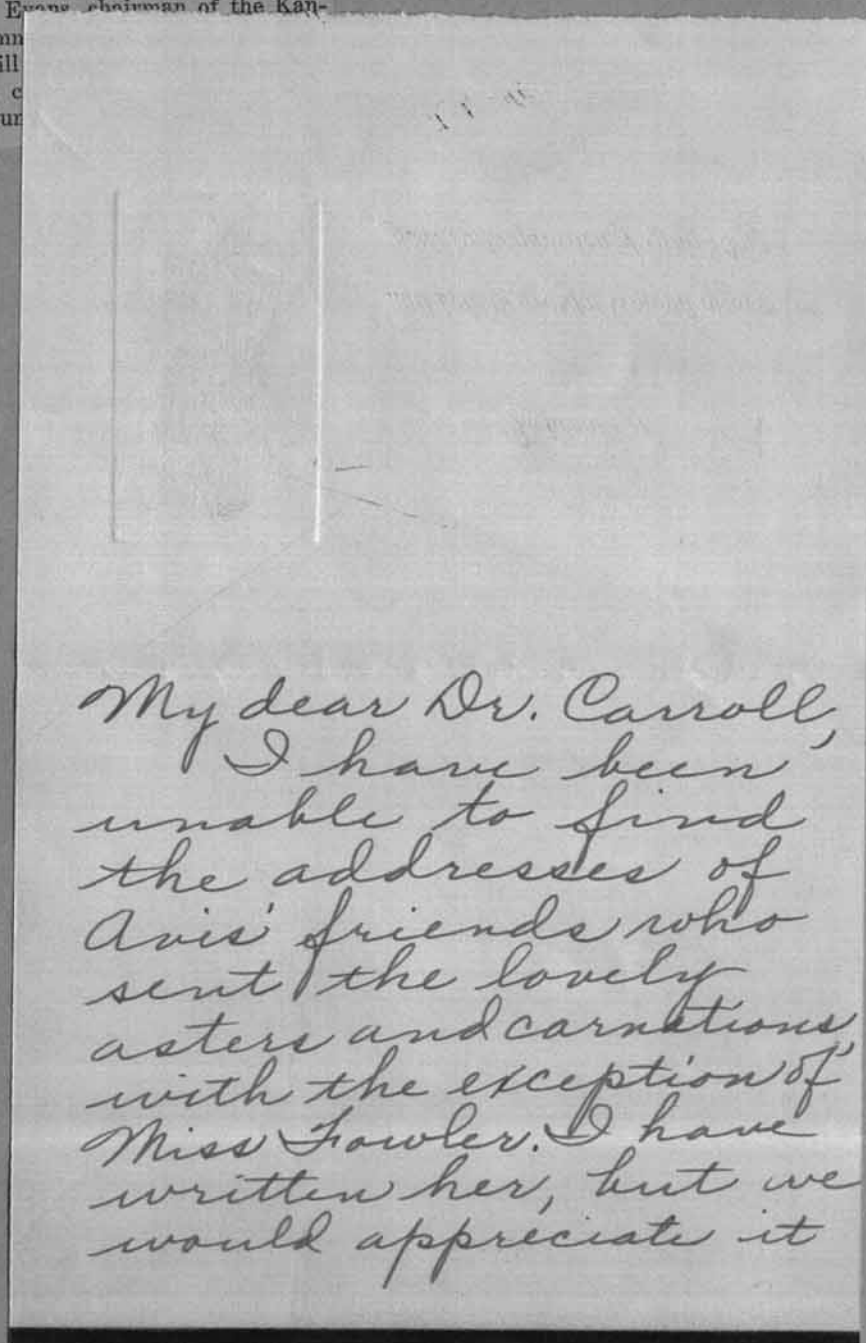 Evans, chairman of the Kan-
ill
c
My dear Dr. Carroll,
I have been
unable to find
the addresses of
Avis' friends who
sent the lovely
asters and carnations,
with the exception of
Miss Fowler. I have
written her, but we
would appreciate it